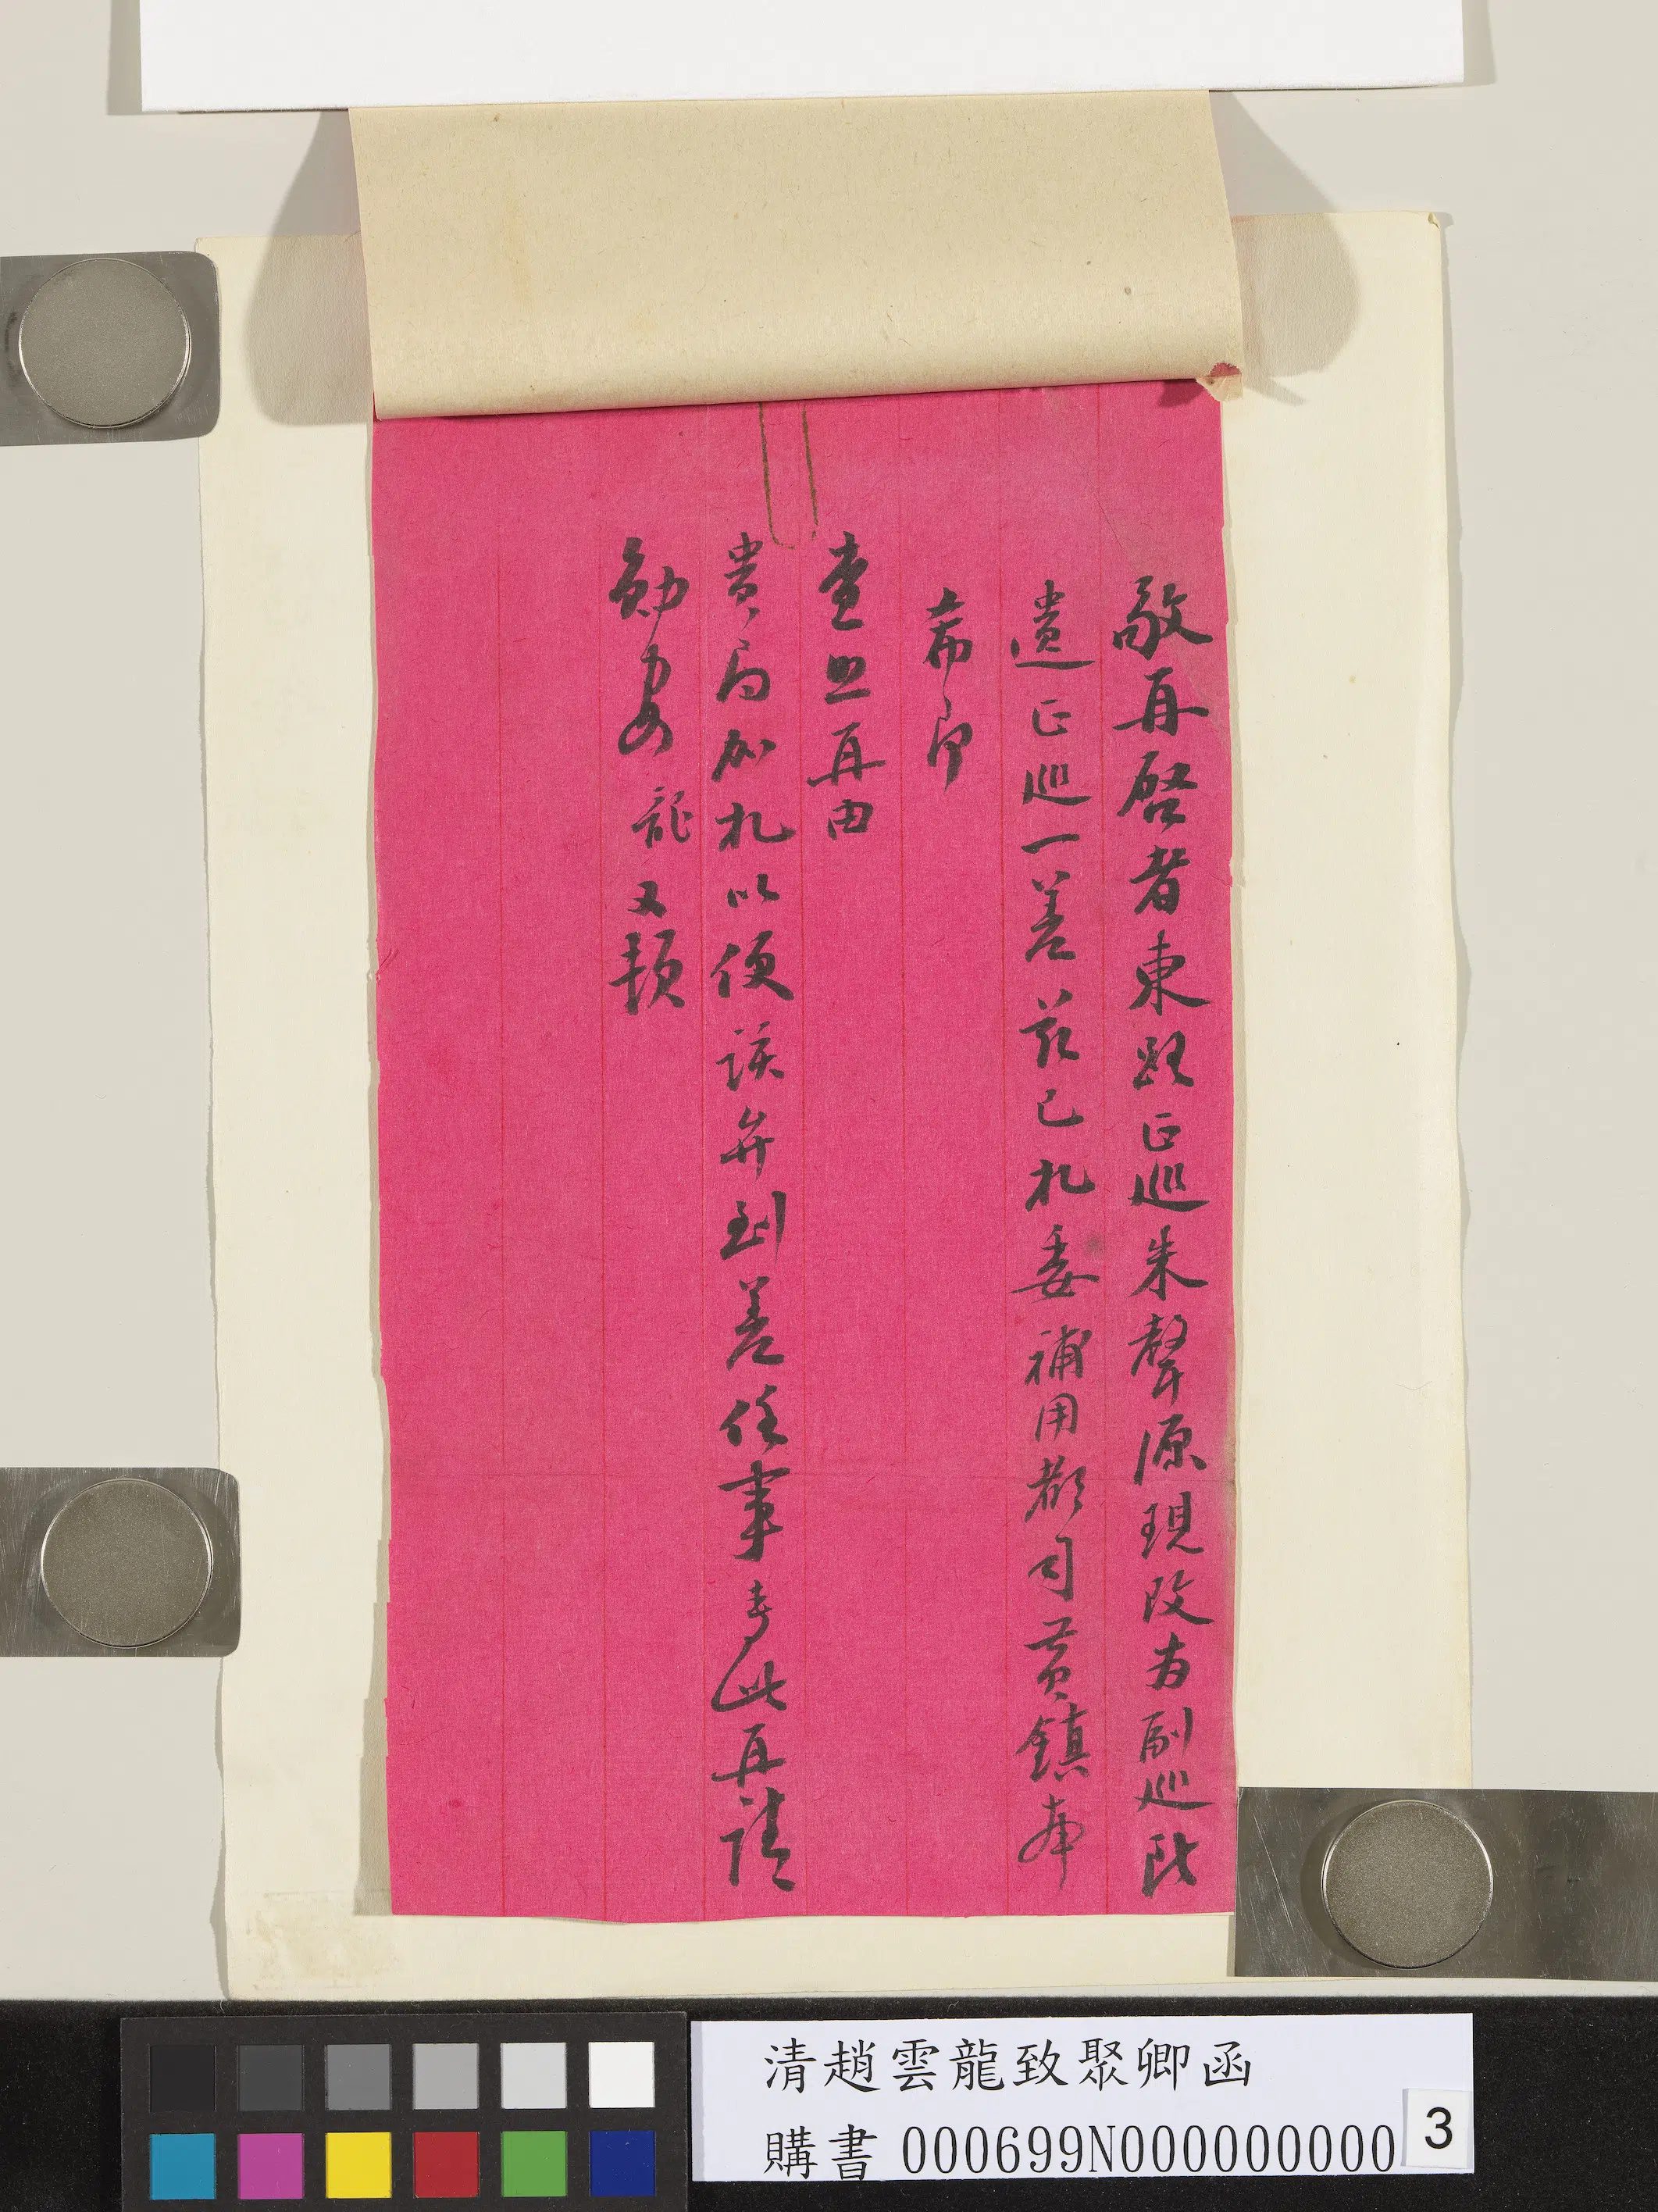 敬再啓者東路正巡朱聲源現改為副巡所
遺正巡一差茲已札委補用都司黃鎮奉
希即
查照再由
貴局加札以便該弁到差任事專此再請
勛安 龍又頓
清趙雲龍致聚卿函
購書 000699N000000000
3